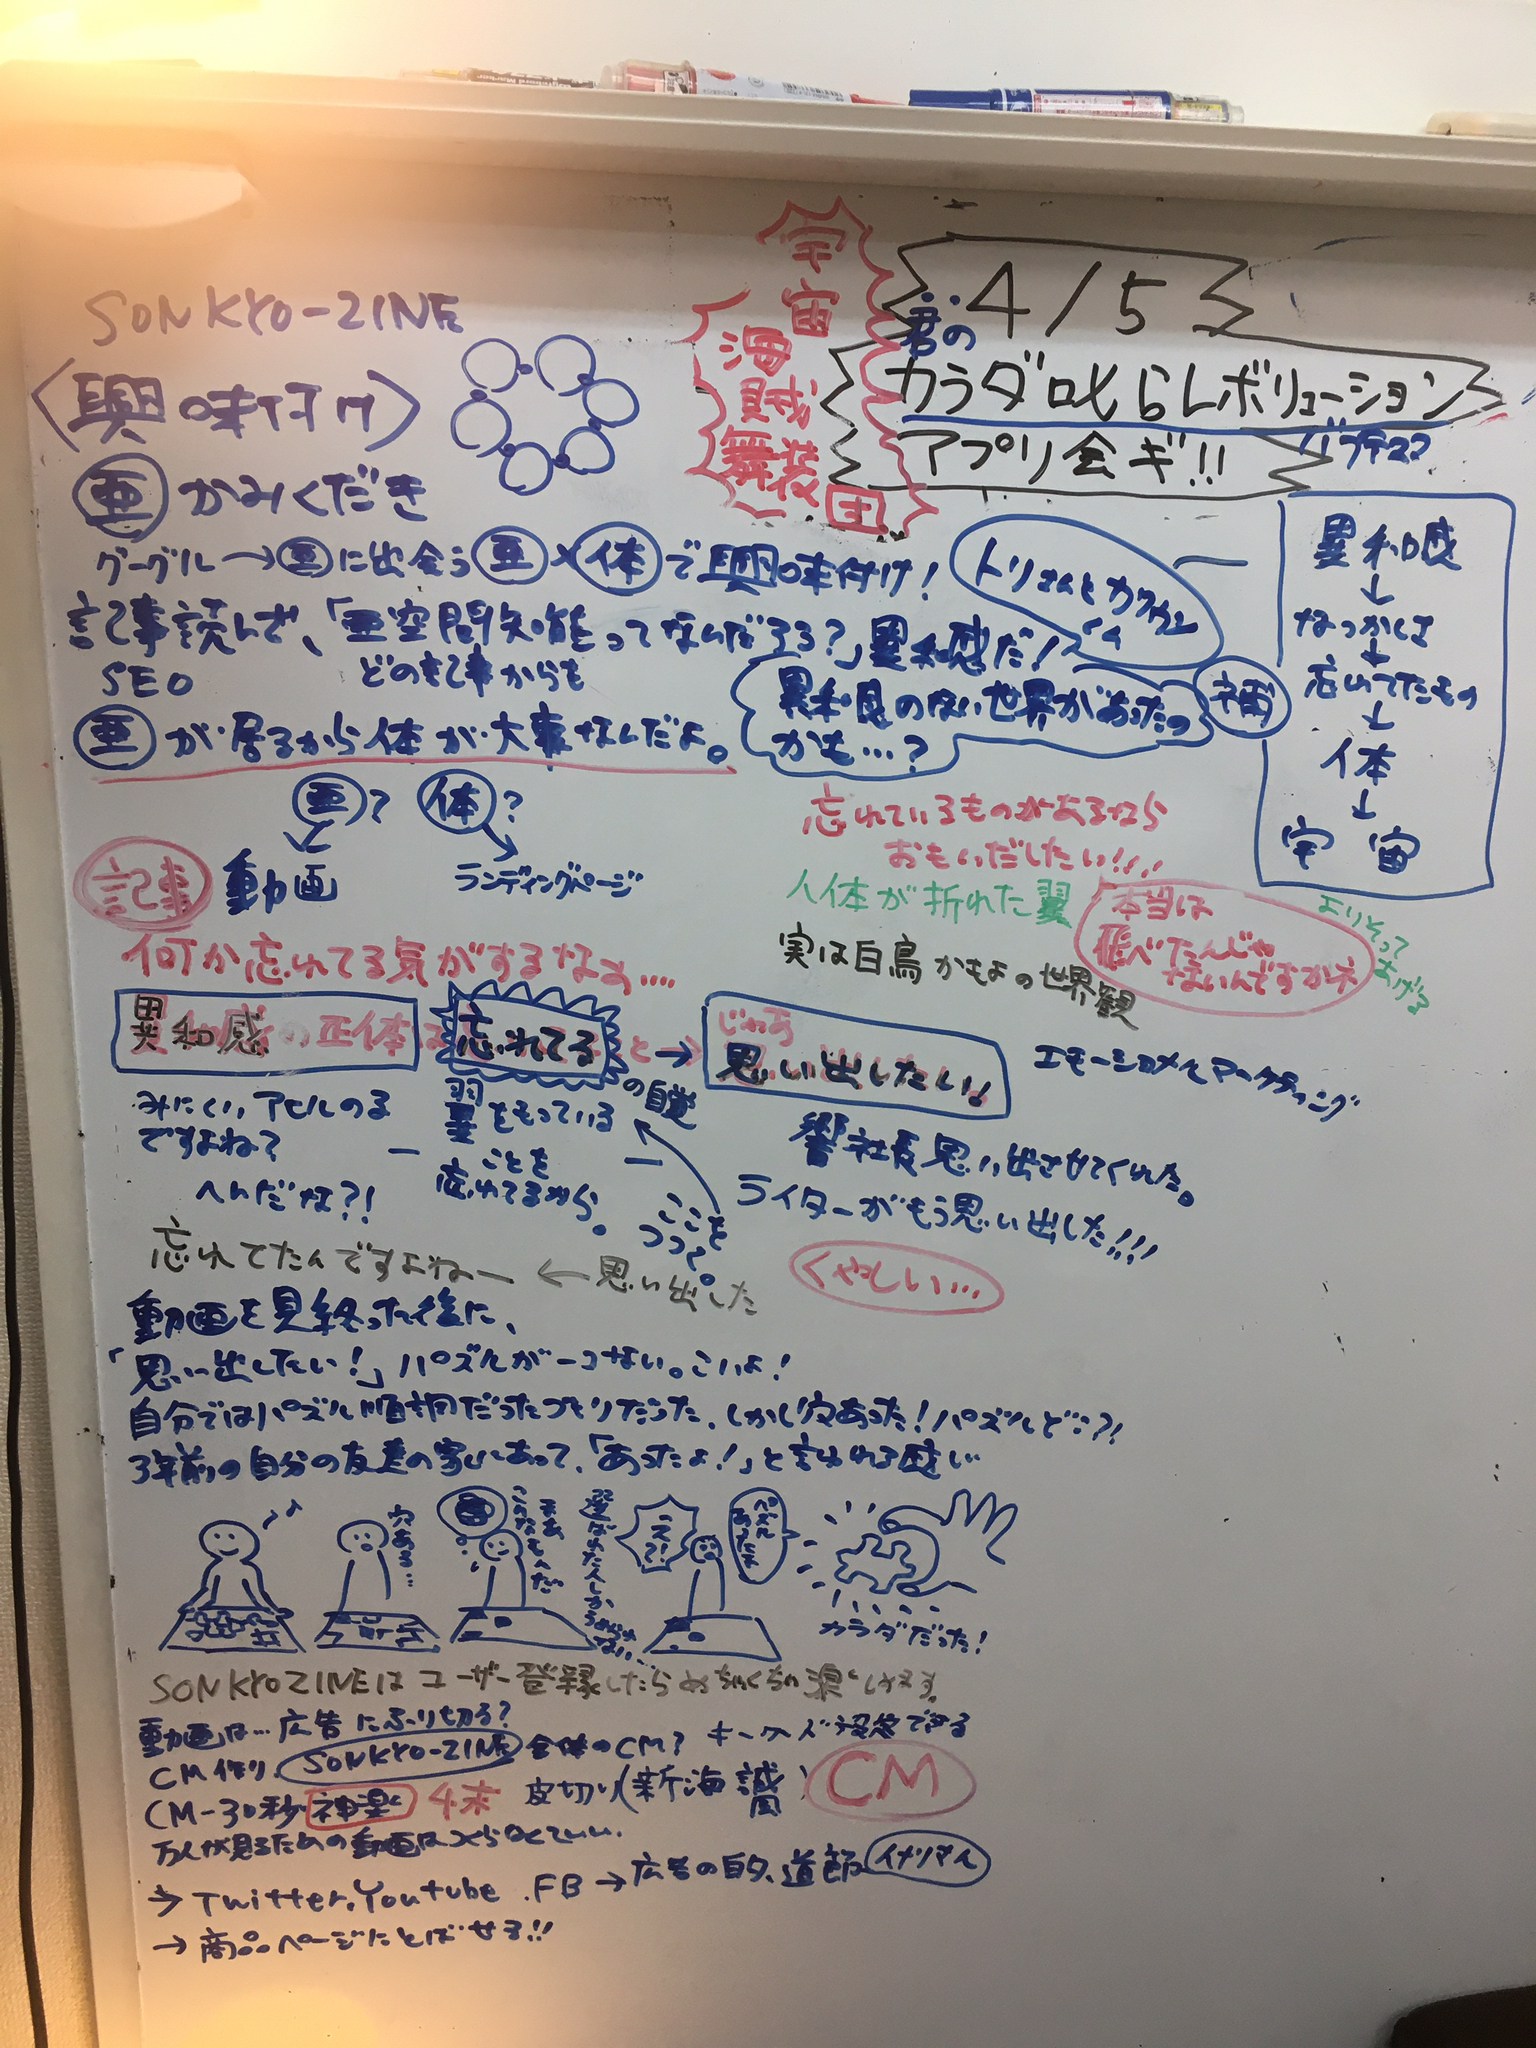 宇宙
海賊
舞装団
4/5
君の
カラダ叱らレボリューション
アプリ会ギ!!
SONKYO-ZINE
〈興味付け〉
亜 かみくだき
グーグル→亜に出会う 亜×体で興味付け!
記事読んで、「亜空間知能ってなんだろう?」異和感だ!
SEO
どの記事からも
亜が居るから体が大事なんだよ。
異和感のない世界があったの
かも…?
補
異和感
↓
なつかしさ
↓
忘れてたもの
↓
体
↓
宇宙
亜? 体?
記事 動画
ランディングページ
忘れているものがあるなら
おもいだしたい!!!!
人体が折れた翼
本当は
飛べたんじゃ
ないんですかネ
よりそって
あげる
実は白鳥かもよの世界観
何か忘れてる気がするなぁ….
異和感の正体は
忘れてる
の自覚
→
じゃあ
思い出したい!
エモーショナルマーケティング
みにくいアヒルのる
ですよね?
へんだな?!
翼をもっている
ことを
忘れてるから。
ここを
つつく
響社長思い出させてくれた。
ライターがもう思い出した!!!
くやしい…
忘れてたんですよねー ← 思い出した
動画を見終った後に、
「思い出したい!」パズルが一コない。こいよ!
自分ではパズル順調だったつもりだった、しかし穴あった!パズルどこ?!
3年前の自分の友達の家にあって、「あったよ!」と言われる感じ
穴ある…
選ばれた人しか
うえっ?!
パズル
あったよ
カラダだった!
SONKYOZINEは ユーザー登録したらめちゃくちゃ楽しめます。
動画は…広告にふり切る?
CM作り、SONKYO-ZINE 全体のCM? キーワード設定できる
CM-30秒 神楽 4末 皮切り(新海誠風) CM
万人が見るための動画はつくらなくていい。
→Twitter.Youtube.FB→広告の自分、道節 イナリさん
→商品ページにとばせる!!